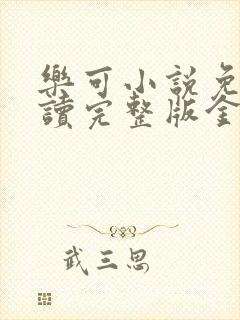 樂可小說免
讀完整版全
武三思